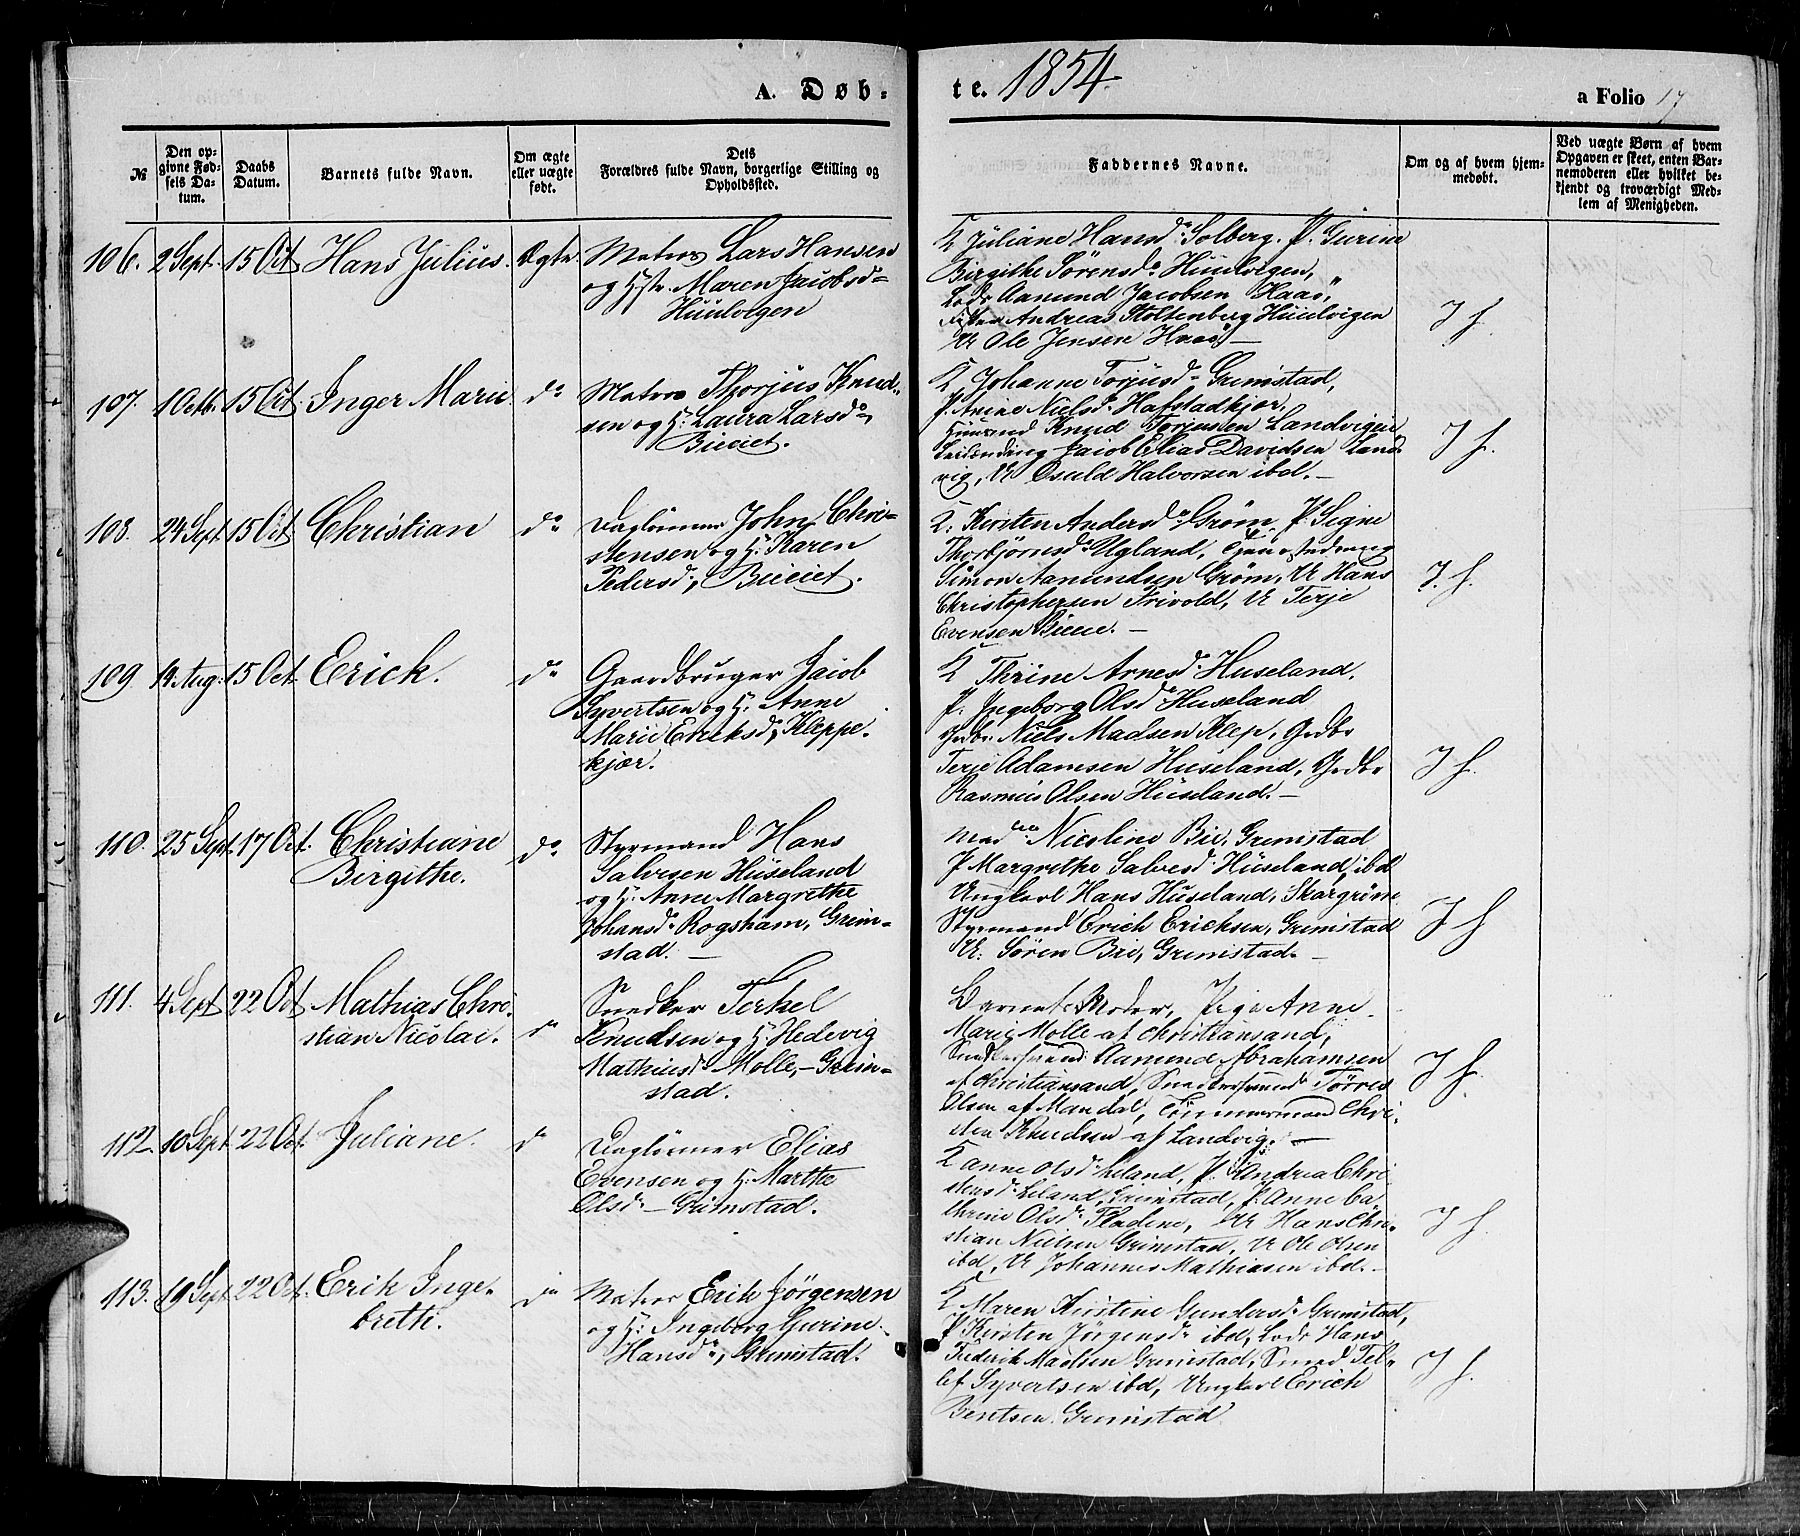 A. Døb-
te. 1854.
a Folio 17
No
Den opgivne Fødsels Datum.
Daabs Datum.
Barnets fulde Navn.
Om ægte eller uægte født.
Dets Forældres fulde Navn, borgerlige Stilling og Opholdssted.
Faddernes Navne.
Om og af hvem hjemmedøbt.
Ved uægte Børn af hvem Opgaven er skeet, enten Barnemoderen eller hvilket bekjendt og troværdigt Medlem af Menigheden.
106. 2 Sept. 15 Oct Hans Julius. Ægte.
Matros Lars Hansen
og Hstr. Maren Jacobsd
Huulvigen
K Juliane Hansd. Solberg. P. Gurine
Birgithe Sörensd. Huulvigen,
Lods Aamund Jacobsen Haaö,
Fisker Andreas Stoltenberg Huulvigen
U Ole Jensen Haaö. —
J f.
107. 1 Octb. 15 Oct. Inger Marie do
Matros Thorjus Knud-
sen og H. Laura Larsd.
Bieiet.
K. Johanne Torjusd. Grimstad,
P. Anine Nielsd. Hafstadkjær,
Huusmd Knud Torjussen Landvigen
Jacob Elias Davidsen Land
vig, U Osuld Halvorsen ibd. —
J f.
108. 24 Sept. 15 Oct Christian do
Daglönner John Chri-
stensen og H. Karen
Pedersd., Bieiet.
K: Kirsten Andersd. Gröm, P. Signe
Thorbjörnsd. Ugland,
Simon Aamundsen Gröm, U Hans
Christophersen Frivold, U Terje
Evensen Biein. —
J. f.
109. 14 Aug. 15 Oct. Erick. do
Gaardbruger Jacob
Syvertsen og H. Anne
Marie Ericksd., Kleppe-
kjær.
K Thrine Arnesd. Huseland.
P. Ingeborg Olsd. Huseland
Grdbr. Niels Madsen Klep, Grdbr
Terje Adamsen Huseland, Grdbr
Rasmus Olsen Huseland. —
J f.
110. 25 Sept. 17 Oct. Christiane
Birgithe.
do
Styrmand Hans
Salvesen Huseland
og H. Anne Margrethe
Johansd. Rogsham, Grim-
stad. —
Mad. Nicoline Bie, Grimstad
P Margrethe Salvesd. Huseland, ibd
Ungkarl Hans Huseland, Skargröm
Styrmand Erich Erichsen, Grimstad
U. Sören Bie, Grimstad. —
J f
111. 4 Sept 22 Oct Mathias Chri-
stian Nicolai.
do
Snedker Terkel
Knudsen og H. Hedevig
Mathiasd. Molle, - Grim-
stad.
Barnets Moder, Pige Anne
Marie Molle af Christiansand,
Snedkersvend Aamund Abrahamsen
af Christiansand, Snedkersvend Törres
Olsen af Mandal, Tömmermand Chri-
sten Knudsen af Landvig. —
J f.
112. 10 Sept. 22 Oct. Juliane. do
Daglönner Elias
Evensen og H. Marthe
Olsd. - Grimstad.
K Anne Olsd. Leland, P. Andrea Chri-
stensd. Leland, Grimstad, P. Anne Ca-
thrine Olsd. Fladene, U Hans Chri-
stian Nielsen Grimstad, U Ole Olsen
ibd, U Johannes Mathiasen ibd. -
J f.
113. 19 Sept. 22 Oct. Erik Inge-
breth.
do
Matros Erik Jörgensen
og H. Ingeborg Gurine
Hansd., Grimstad.
K Maren Kirstine Gundersd. Grimstad,
P. Kirsten Jörgensd. ibd, Lods Hans
Frederik Madsen Grimstad, Smed Tel-
lef Syvertsen ibd, Ungkarl Erich
Bentsen Grimstad
J f.